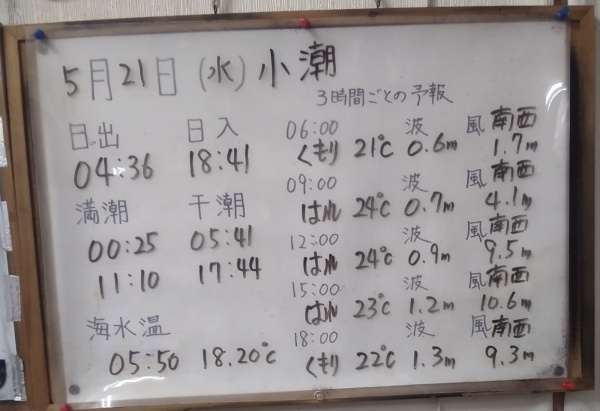 5月21日(水)小潮
3時間ごとの予報
日出 日入
04:36 18:41
満潮 干潮
00:25 05:41
11:10 17:44
海水温
05:50 18.20℃
06:00 波 風 南西
くもり 21℃ 0.6m 1.7m
09:00 波 風 南西
はれ 24℃ 0.7m 4.1m
12:00 波 風 南西
はれ 24℃ 0.9m 9.5m
15:00 波 風 南西
はれ 23℃ 1.2m 10.6m
18:00 波 風 南西
くもり 22℃ 1.3m 9.3m